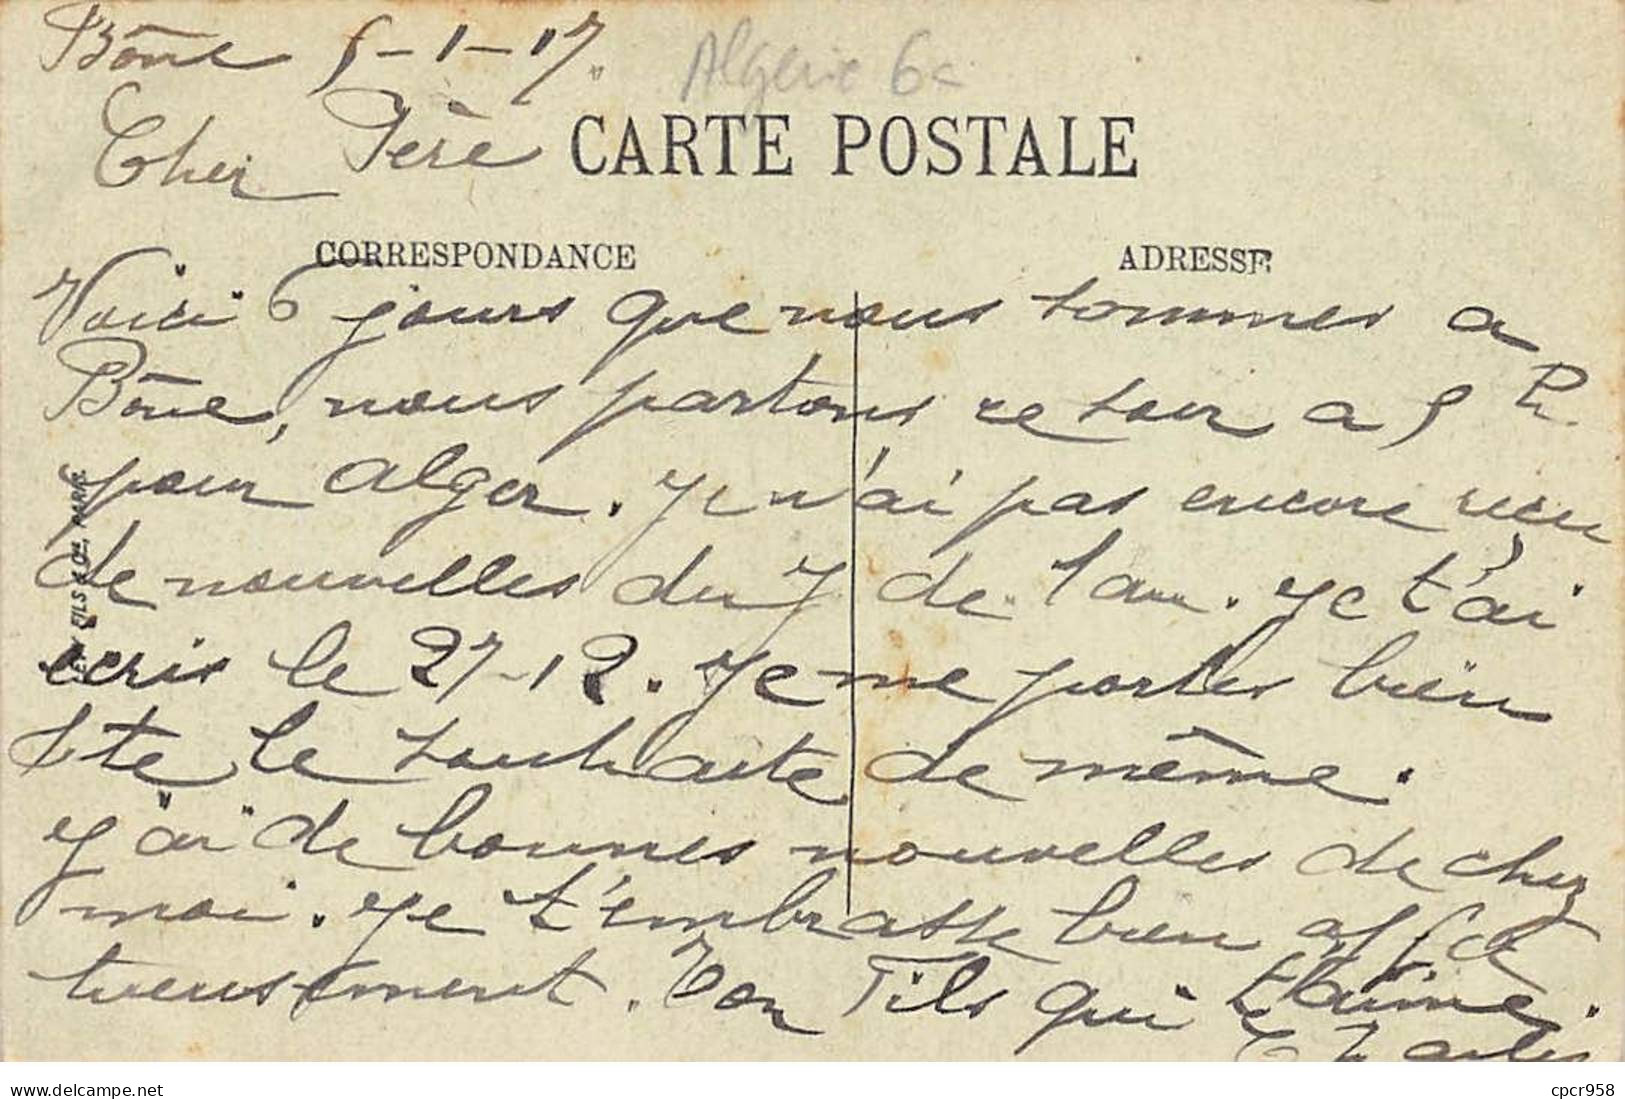 Bône 5-1-17.
Algérie 6c
Cher Père
CARTE POSTALE
CORRESPONDANCE
ADRESSE
Voici 6 jours que nous sommes a
Bône, nous partons ce soir a 5 h.
pour Alger. Je n'ai pas encore reçu
de nouvelles du J de l'an. Je t'ai
ecris le 27-12. Je me portes bien
et te le souhaite de même.
J'ai de bonnes nouvelles de chez
moi. Je t'embrasse bien affec
tueusement. Ton Fils qui t'aime.
Charles
FILS & Cie, PARIS
cpcr958